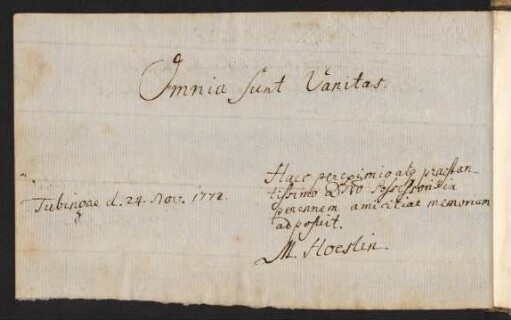 Omnia sunt Vanitas.
Tubingae d. 24. Nov. 1772.
Haec pereximio atq praestan-
tissimo Dno Possessori in
perennem amicitiae memoriam
adposuit.
M. Hoeslin.